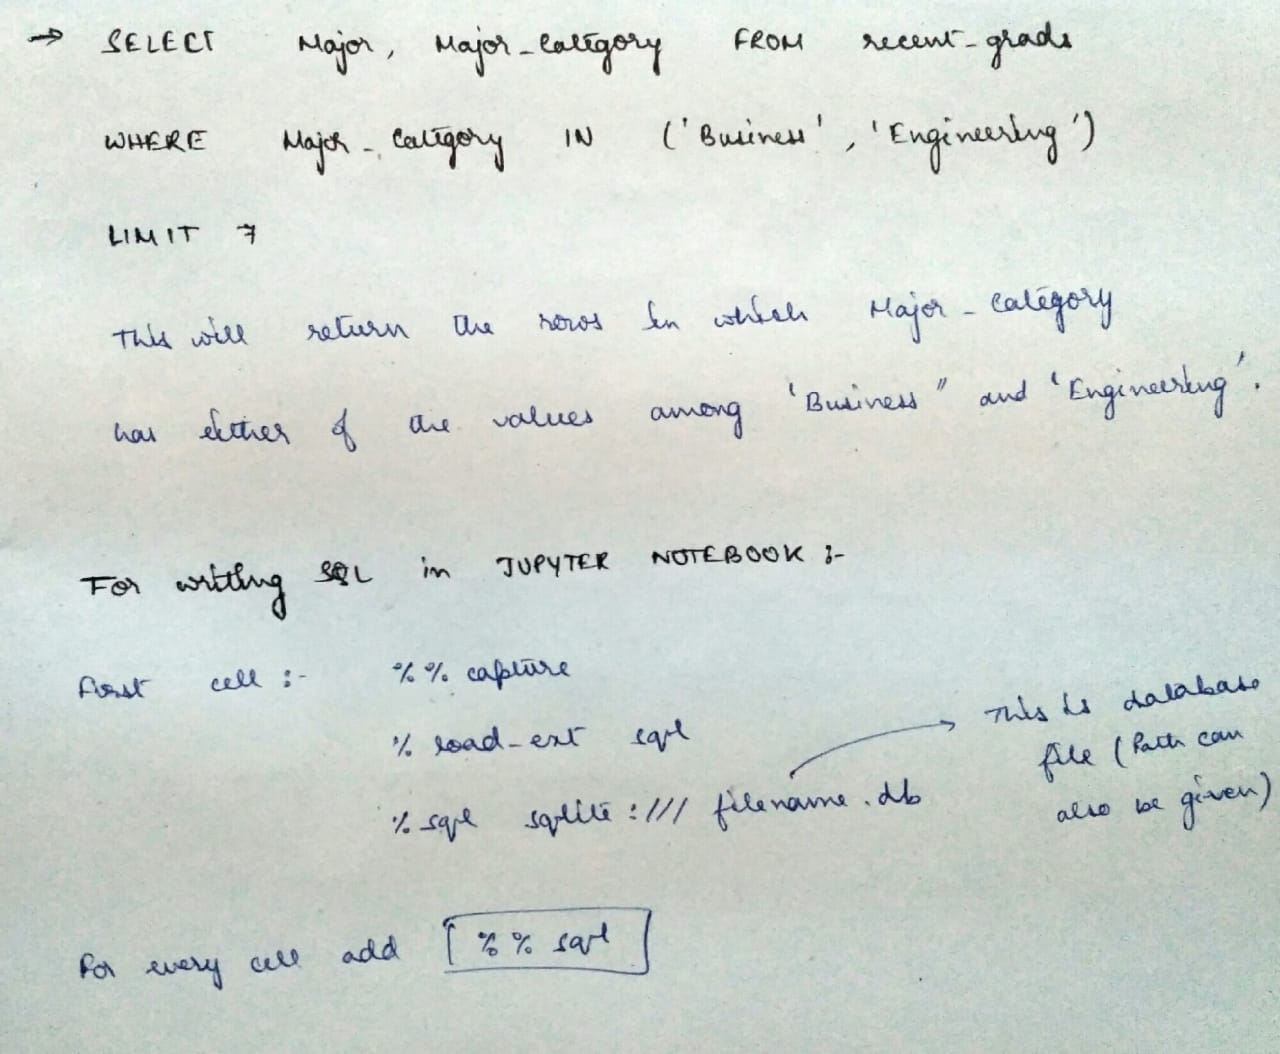 → SELECT Major, Major_Category FROM recent_grads
WHERE Major_Category IN ('Business', 'Engineering')
LIMIT 7
This will return the rows in which Major_Category
has either of the values among 'Business" and 'Engineering'.
For writing SQL in JUPYTER NOTEBOOK :-
First cell :- %% capture
% load_ext sql
% sql sqlite:/// filename.db
This is database
file (Path can
also be given)
For every cell add [%% sql]